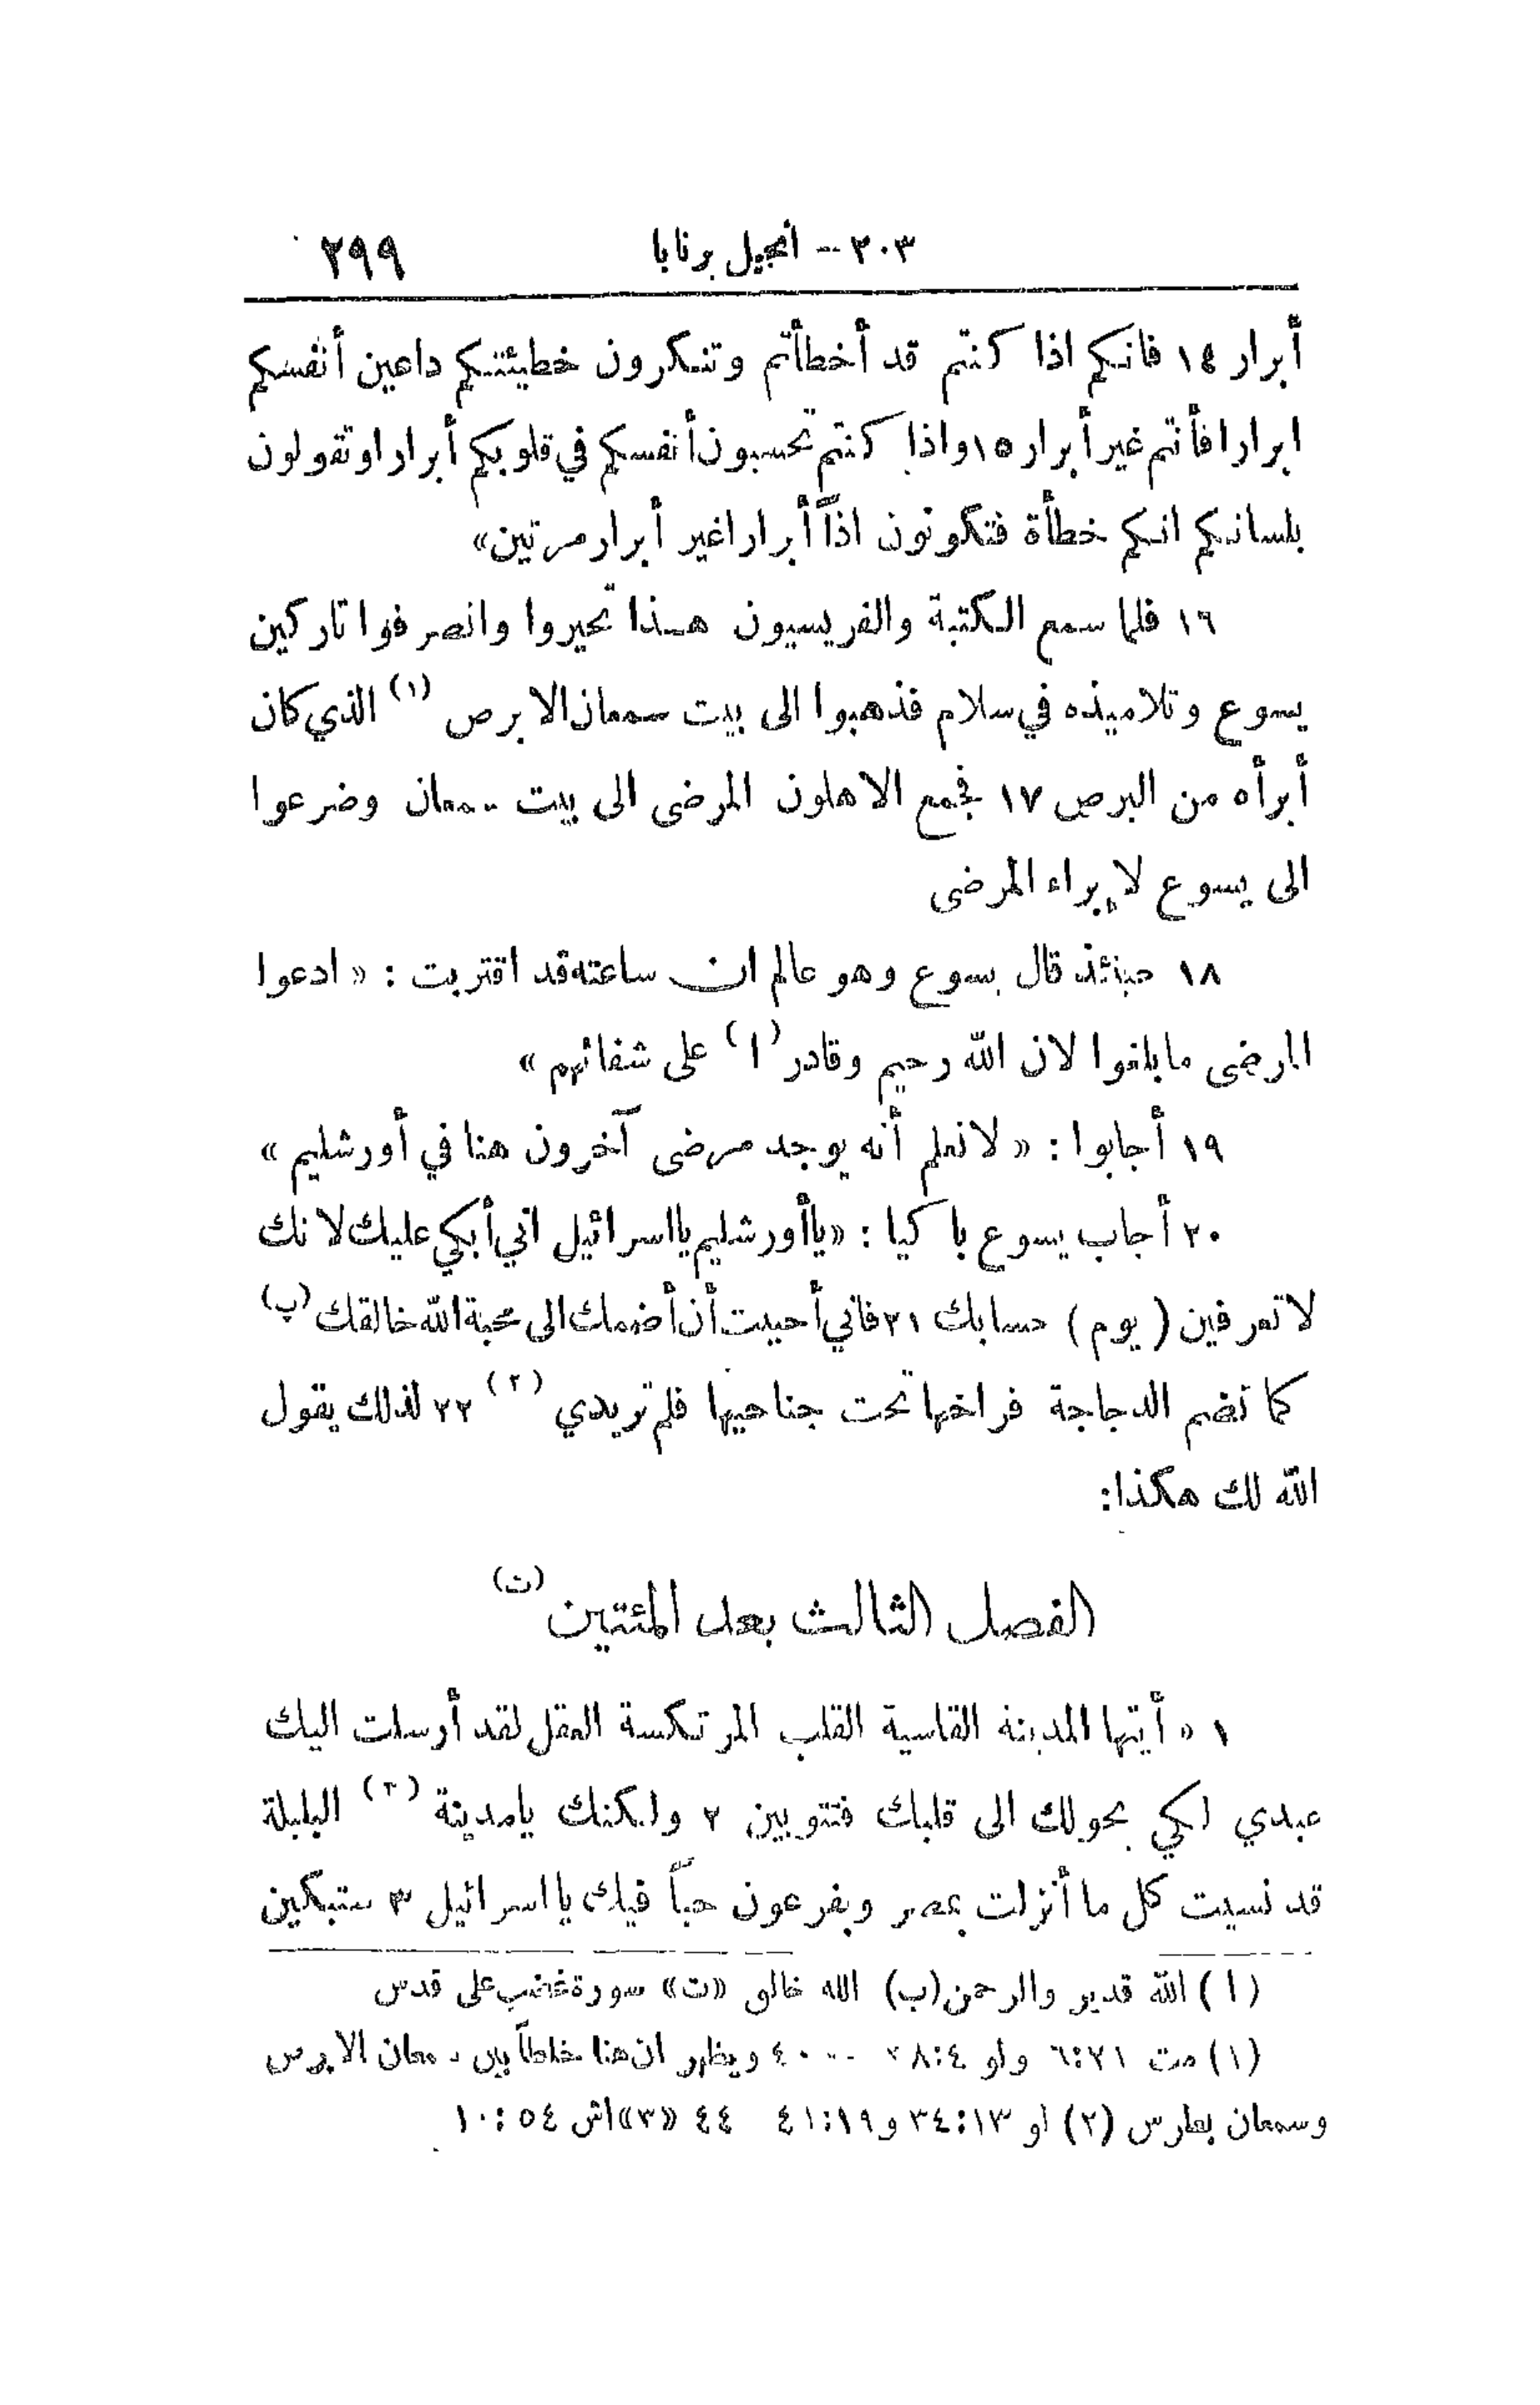 ٢٠٣ — أنجيل برنابا ٢٩٩
أبرار ١٤ فانكم اذا كنتم قد أخطأتم وتنكرون خطيئتكم داعين أنفسكم
ابرارا فأنتم غير أبرار ١٥ واذا كنتم تحسبون أنفسكم في قلوبكم أبرارا وتقولون
بلسانكم انكم خطأة فتكونون اذاً أبرارا غير أبرار مرتين»
١٦ فلما سمع الكتبة والفريسيون هذا تحيروا وانصرفوا تاركين
يسوع وتلاميذه في سلام فذهبوا الى بيت سمعان الابرص (١) الذي كان
أبرأه من البرص ١٧ فجمع الاهلون المرضى الى بيت سمعان وضرعوا
الى يسوع لإبراء المرضى
١٨ حينئذ قال يسوع وهو عالم ان ساعته قد اقتربت : « ادعوا
المرضى ما بلغوا لان الله رحيم وقادر (ا) على شفائهم »
١٩ أجابوا : « لا نعلم أنه يوجد مرضى آخرون هنا في أورشليم »
٢٠ أجاب يسوع باكيا : «يا أورشليم يا اسرائيل اني أبكي عليك لانك
لا تعرفين ( يوم ) حسابك ٢١ فاني أحببت أن أضمك الى محبة الله خالقك (ب)
كما تضم الدجاجة فراخها تحت جناحيها فلم تريدي (٢) ٢٢ لذلك يقول
الله لك هكذا:
الفصل الثالث بعد المئتين (ت)
١ « أيتها المدينة القاسية القلب المرتكسة العقل لقد أرسلت اليك
عبدي لكي يحولك الى قلبك فتتوبين ٢ ولكنك يا مدينة (٣) البلبلة
قد نسيت كل ما أنزلت بمصر وبفرعون حباً فيك يا اسرائيل ٣ ستبكين
(ا) الله قدير والرحمن (ب) الله خالق «ت» سورة غضب على قدس
(١) مت ٦:٢١ ولو ٣٨:٤ — ٤٠ ويظهر ان هنا خلطاً بين سمعان الابرص
وسمعان بطرس (٢) لو ٣٤:١٣ و٤١:١٩ ٤٤ «٣» اش ٥٤ :١٠